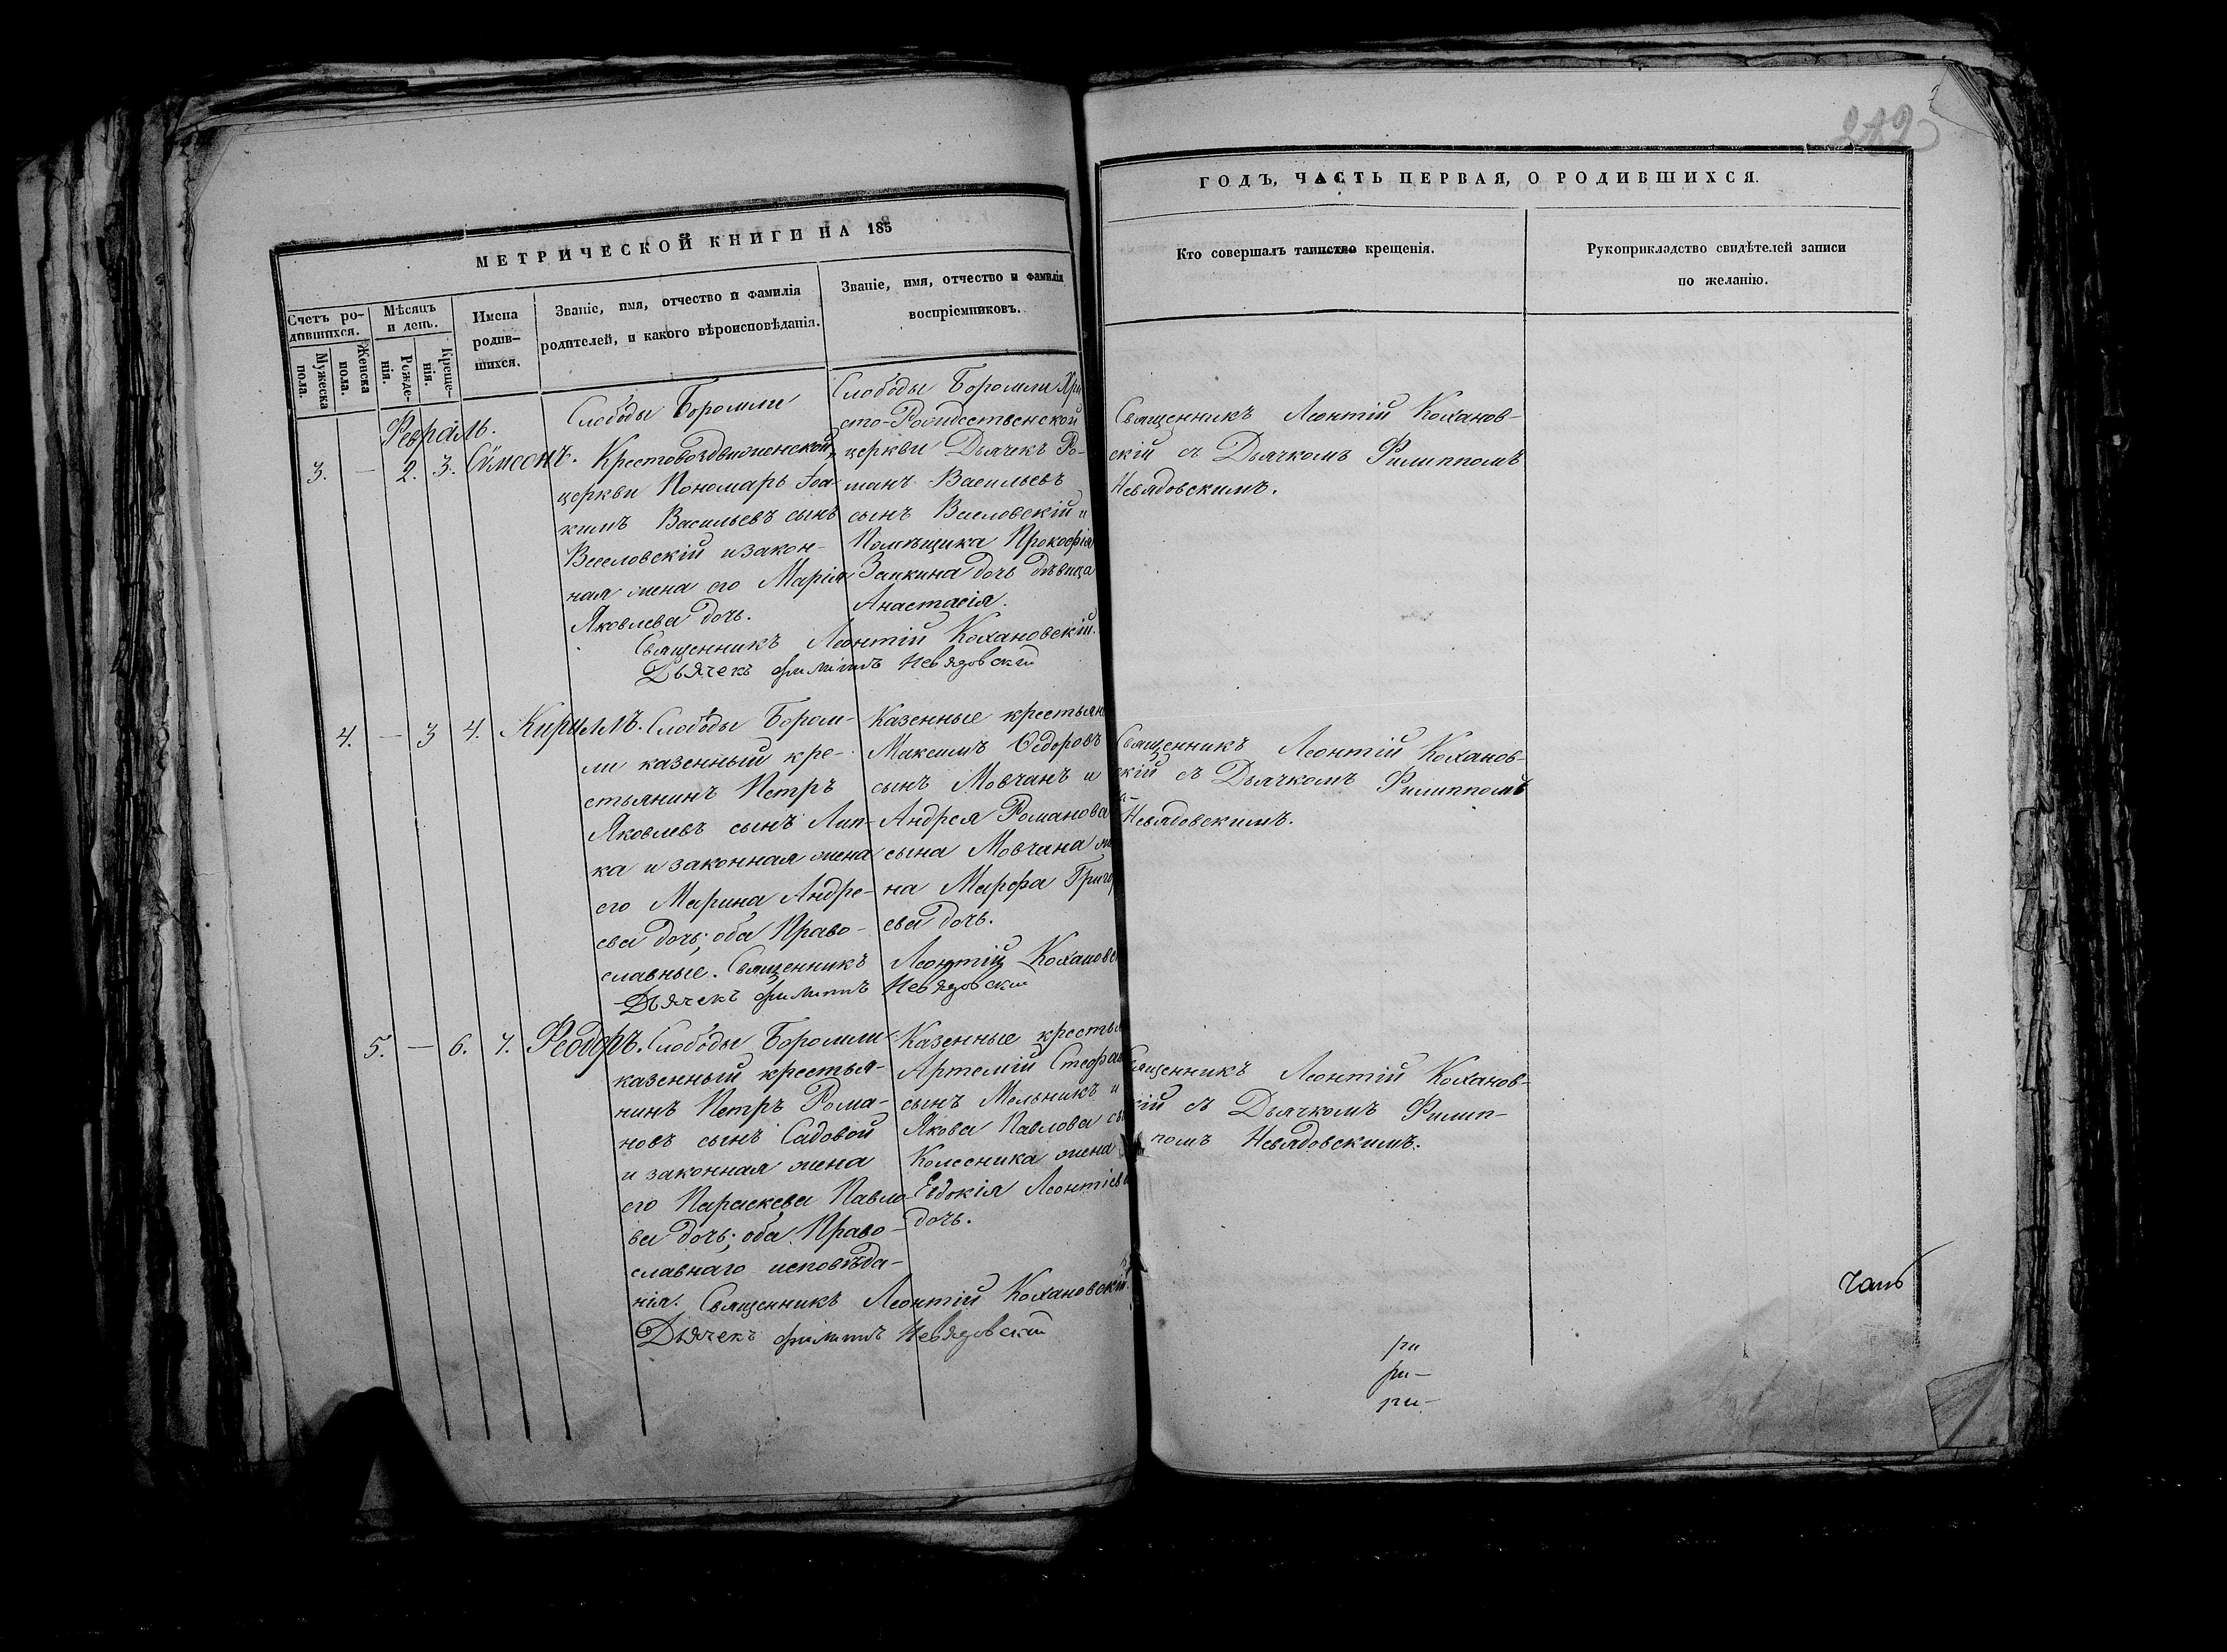 МЕТРИЧЕСКОЙ КНИГИ НА 185
Счетъ ро-
дившихся.
Мужеска
пола.
Женска
пола.
Мѣсяцъ
и день.
Рожде-
нія.
Креще-
нія.
Имена
родив-
шихся.
Званіе, имя, отчество и фамилія
родителей, и какого вѣроисповѣданія.
Званіе, имя, отчество и фамилія
воспріемниковъ.
Февраль.
3. — 2. 3. Сѵмеонъ.
Слободы Боромли
Крестовоздвиженской
церкви Пономарь Іоа-
кимъ Васильевъ сынъ
Веселовскій и закон-
ная жена его Марія
Яковлева дочь.
Слободы Боромли Хри
сто-Рождественской
церкви Дьячекъ Ро-
манъ Васильевъ
сынъ Веселовскій и
Помѣщика Прокофія
Заикина дочь дѣвица
Анастасія.
Священникъ Леонтій Кохановскій.
Дьячекъ Филиппъ Невядовскій
4. — 3 4. Кириллъ.
Слободы Бором-
ли казенный кре-
стьянинъ Петръ
Яковлевъ сынъ Лип-
ка и законная жена
его Марина Андре-
ева дочь; оба Право-
славные. Священникъ Леонтій Кохановс
Дьячекъ Филиппъ Невядовскій
Казенные крестьян
Максимъ Ѳедоровъ
сынъ Мовчанъ и
Андрея Романова
сына Мовчана же
на Марфа Григор
ева дочь.
5. — 6. 7. Феодоръ.
Слободы Боромли
казенный крестья-
нинъ Петръ Рома-
новъ сынъ Садовой
и законная жена
его Параскева Павло-
ва дочь; оба Право-
славнаго исповѣда-
нія. Священникъ Леонтій Кохановскій
Дьячекъ Филиппъ Невядовскій
Казенные крестья
Артемій Стефан
сынъ Мельникъ и
Якова Павлова сы
Колесника жена
Евдокія Леонтіева
дочь.
ГОДЪ, ЧАСТЬ ПЕРВАЯ, О РОДИВШИХСЯ.
Кто совершалъ таинство крещенія.
Рукоприкладство свидѣтелей записи
по желанію.
Священникъ Леонтій Коханов-
скій съ Дьячкомъ Филиппомъ
Невядовскимъ.
Священникъ Леонтій Коханов-
скій съ Дьячкомъ Филиппомъ
Невядовскимъ.
Священникъ Леонтій Коханов-
скій съ Дьячкомъ Филип-
помъ Невядовскимъ.
ри
ри-
ри-